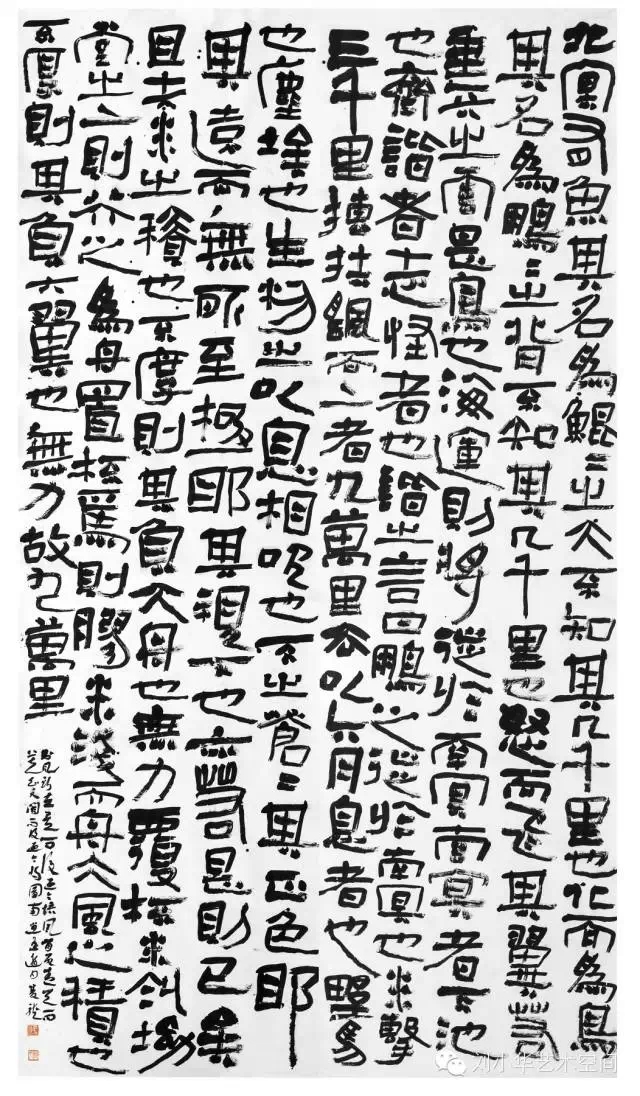 北冥有魚其名為鯤〻之大不知其几千里也化而為鳥
其名為鵬〻之背不知其几千里也怒而飛其翼若
垂天之雲是鳥也海運則將徙於南冥南冥者天池
也齊諧者志怪者也諧之言曰鵬之徙於南冥也水擊
三千里摶扶颻而上者九萬里去以六月息者也野馬
也塵埃也生物之以息相吹也天之蒼〻其正色耶
其遠而無所至極耶其視下也亦若是則已矣
且夫水之積也不厚則其負大舟也無力覆杯水於坳
堂之上則芥之為舟置杯焉則膠水淺而舟大風之積也
不厚則其負大翼也無力故九萬里
刘小华艺术空间